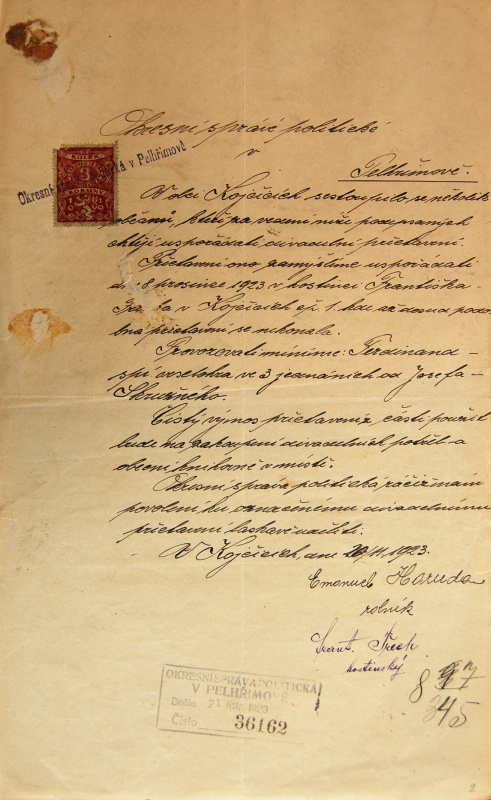 Okresní správě politické
v
Pelhřimově.
KOLEK
3
KORUNY
Okresní v Pelhřimově
V obci Kojčicích sestoupilo se několik
občanů, kteří za vedení níže podepsaných
chtějí uspořádati divadelní představení.
Představení ono zamýšlíme uspořádati
dne 8 prosince 1923 v hostinci Františka
v Kojčicích čp. 1. kde až dosud podo-
bná představení se nekonala.
Provozovati míníme: Ferdinand
spí veselohra ve 3 jednáních od Josefa
Skružného.
Čistý výnos představení z části použit
bude na zakoupení divadelních potřeb a
obecní knihovně v místě.
Okresní správa politická račiž nám
povolení ku označenému divadelnímu
představení laskavě uděliti.
V Kojčicích, dne 20/11. 1923.
Emanuel Haruda
rolník
Frant.
hostinský
OKRESNÍ SPRÁVA POLITICKÁ
V PELHŘIMOVĚ
Došlo 21 listp. 1923
Číslo 36162
345
2